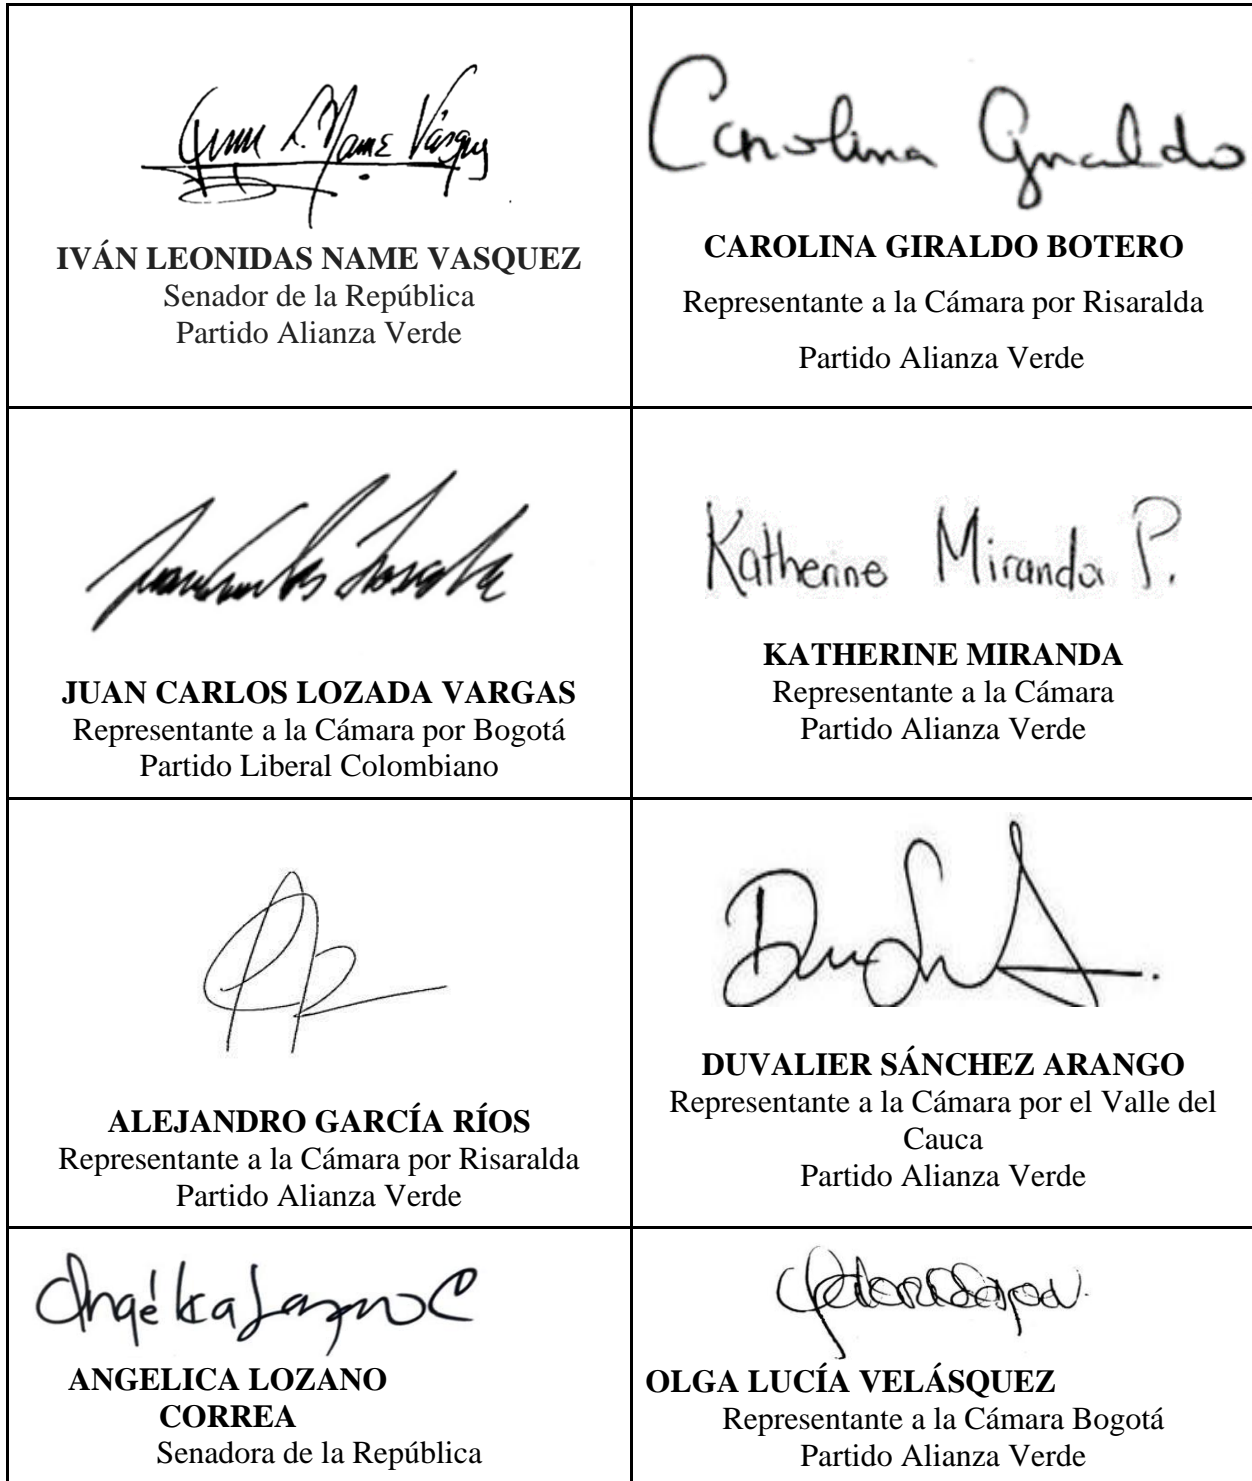 Ivan L. Name Vásquez
IVÁN LEONIDAS NAME VASQUEZ
Senador de la República
Partido Alianza Verde
Carolina Giraldo
CAROLINA GIRALDO BOTERO
Representante a la Cámara por Risaralda
Partido Alianza Verde
JUAN CARLOS LOZADA VARGAS
Representante a la Cámara por Bogotá
Partido Liberal Colombiano
Katherine Miranda P.
KATHERINE MIRANDA
Representante a la Cámara
Partido Alianza Verde
ALEJANDRO GARCÍA RÍOS
Representante a la Cámara por Risaralda
Partido Alianza Verde
DUVALIER SÁNCHEZ ARANGO
Representante a la Cámara por el Valle del
Cauca
Partido Alianza Verde
Angélica Lozano C
ANGELICA LOZANO
CORREA
Senadora de la República
OLGA LUCÍA VELÁSQUEZ
Representante a la Cámara Bogotá
Partido Alianza Verde